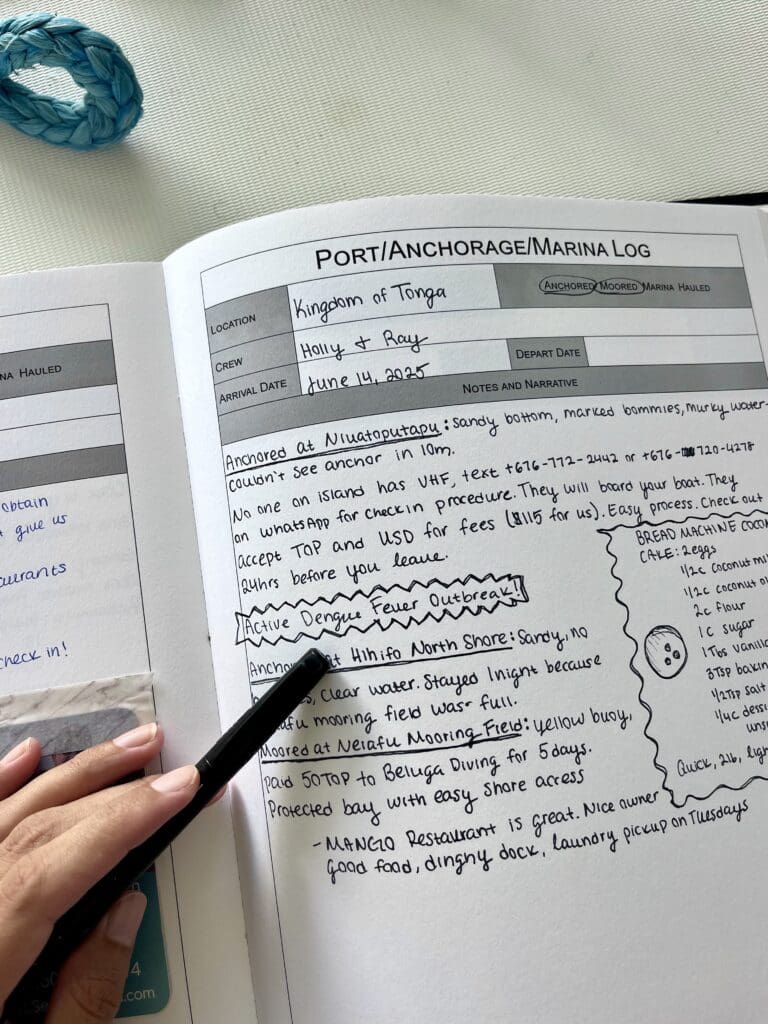 NA HAULED
obtain
give us
currants
check in!
4
.com
PORT/ANCHORAGE/MARINA LOG
LOCATION
Kingdom of Tonga
ANCHORED MOORED MARINA HAULED
CREW
Holly + Ray
ARRIVAL DATE
June 14, 2025
DEPART DATE
NOTES AND NARRATIVE
Anchored at Niuatoputapu: sandy bottom, marked bommies, murky water-
couldn't see anchor in 10m.
No one on island has VHF, text +676-772-2442 or +676-720-4278
on WhatsApp for check in procedure. They will board your boat. They
accept TOP and USD for fees ($115 for us). Easy process. Check out
24hrs before you leave.
Active Dengue Fever Outbreak!
at Hihifo North Shore: Sandy, no
clear water. Stayed 1 night because
mooring field was full.
Moored at Neiafu Mooring Field: yellow buoy,
paid 50 TOP to Beluga Diving for 5 days.
Protected bay with easy shore access
- MANGO Restaurant is great. Nice owner
good food, dinghy dock, laundry pickup on Tuesdays
BREAD MACHINE COCO
CAKE: 2 eggs
1/2c coconut mi
1/2c coconut o
2c flour
1c sugar
1 Tbs vanill
3 Tsp bakin
1/2 Tsp salt
1/4c desi
uns
Quick, 2lb, ligh